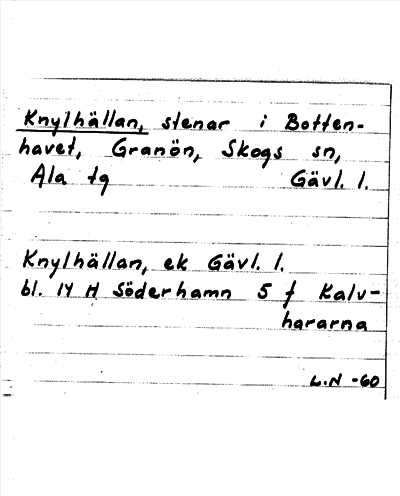 Knylhällan, stenar i Botten-
havet, Granön, Skogs sn,
Ala tg Gävl. l.
Knylhällan, ek Gävl. l.
bl. 14 H Söderhamn 5 f Kalv-
hararna
L.N -60